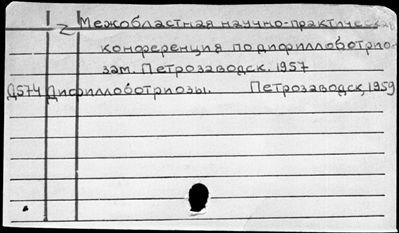 2 Межобластная научно-практическая
конференция по дифиллоботрио-
зам. Петрозаводск. 1957
Д574 Дифиллоботриозы. Петрозаводск, 1959